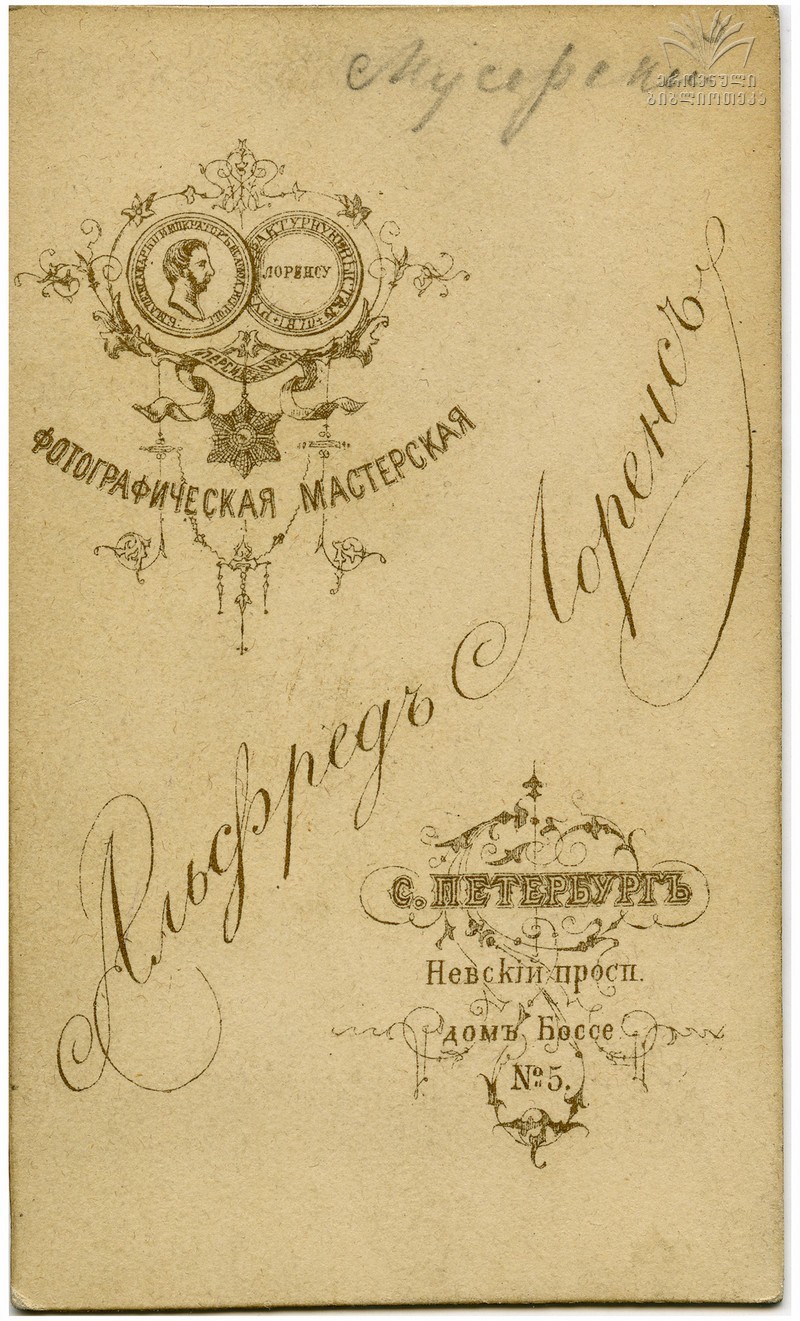 ეროვნული
ბიბლიოთეკა
ЛОРЕНСУ
ФОТОГРАФИЧЕСКАЯ МАСТЕРСКАЯ
Альфредъ Лоренсъ
С. ПЕТЕРБУРГЪ
Невскій просп.
домъ Боссе
№ 5.